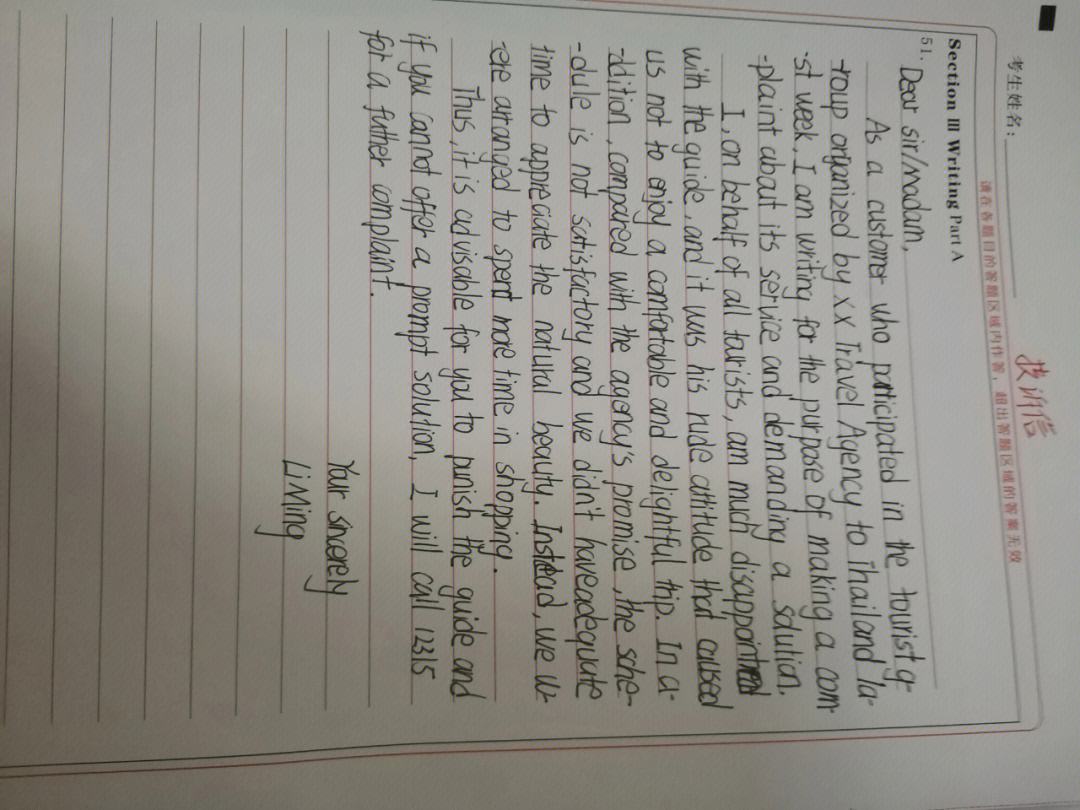 考生姓名:
投诉信
请在各题目的答题区域内作答，超出答题区域的答案无效
Section III Writing Part A
51.
Dear sir/Madam,
As a customer who participated in the tourist g-
-roup organized by xx Travel Agency to Thailand la-
-st week, I am writing for the purpose of making a com-
-plaint about its service and demanding a solution.
I, on behalf of all tourists, am much disappointed
with the guide, and it was his rude attitude that caused
us not to enjoy a comfortable and delightful trip. In a-
-ddition, compared with the agency's promise, the sche-
-dule is not satisfactory and we didn't have adequate
time to appreciate the natural beauty. Instead, we w-
-ere arranged to spent more time in shopping.
Thus, it is advisable for you to punish the guide and
if you cannot offer a prompt solution, I will call 12315
for a futher complaint.
Your sincerely
Li Ming